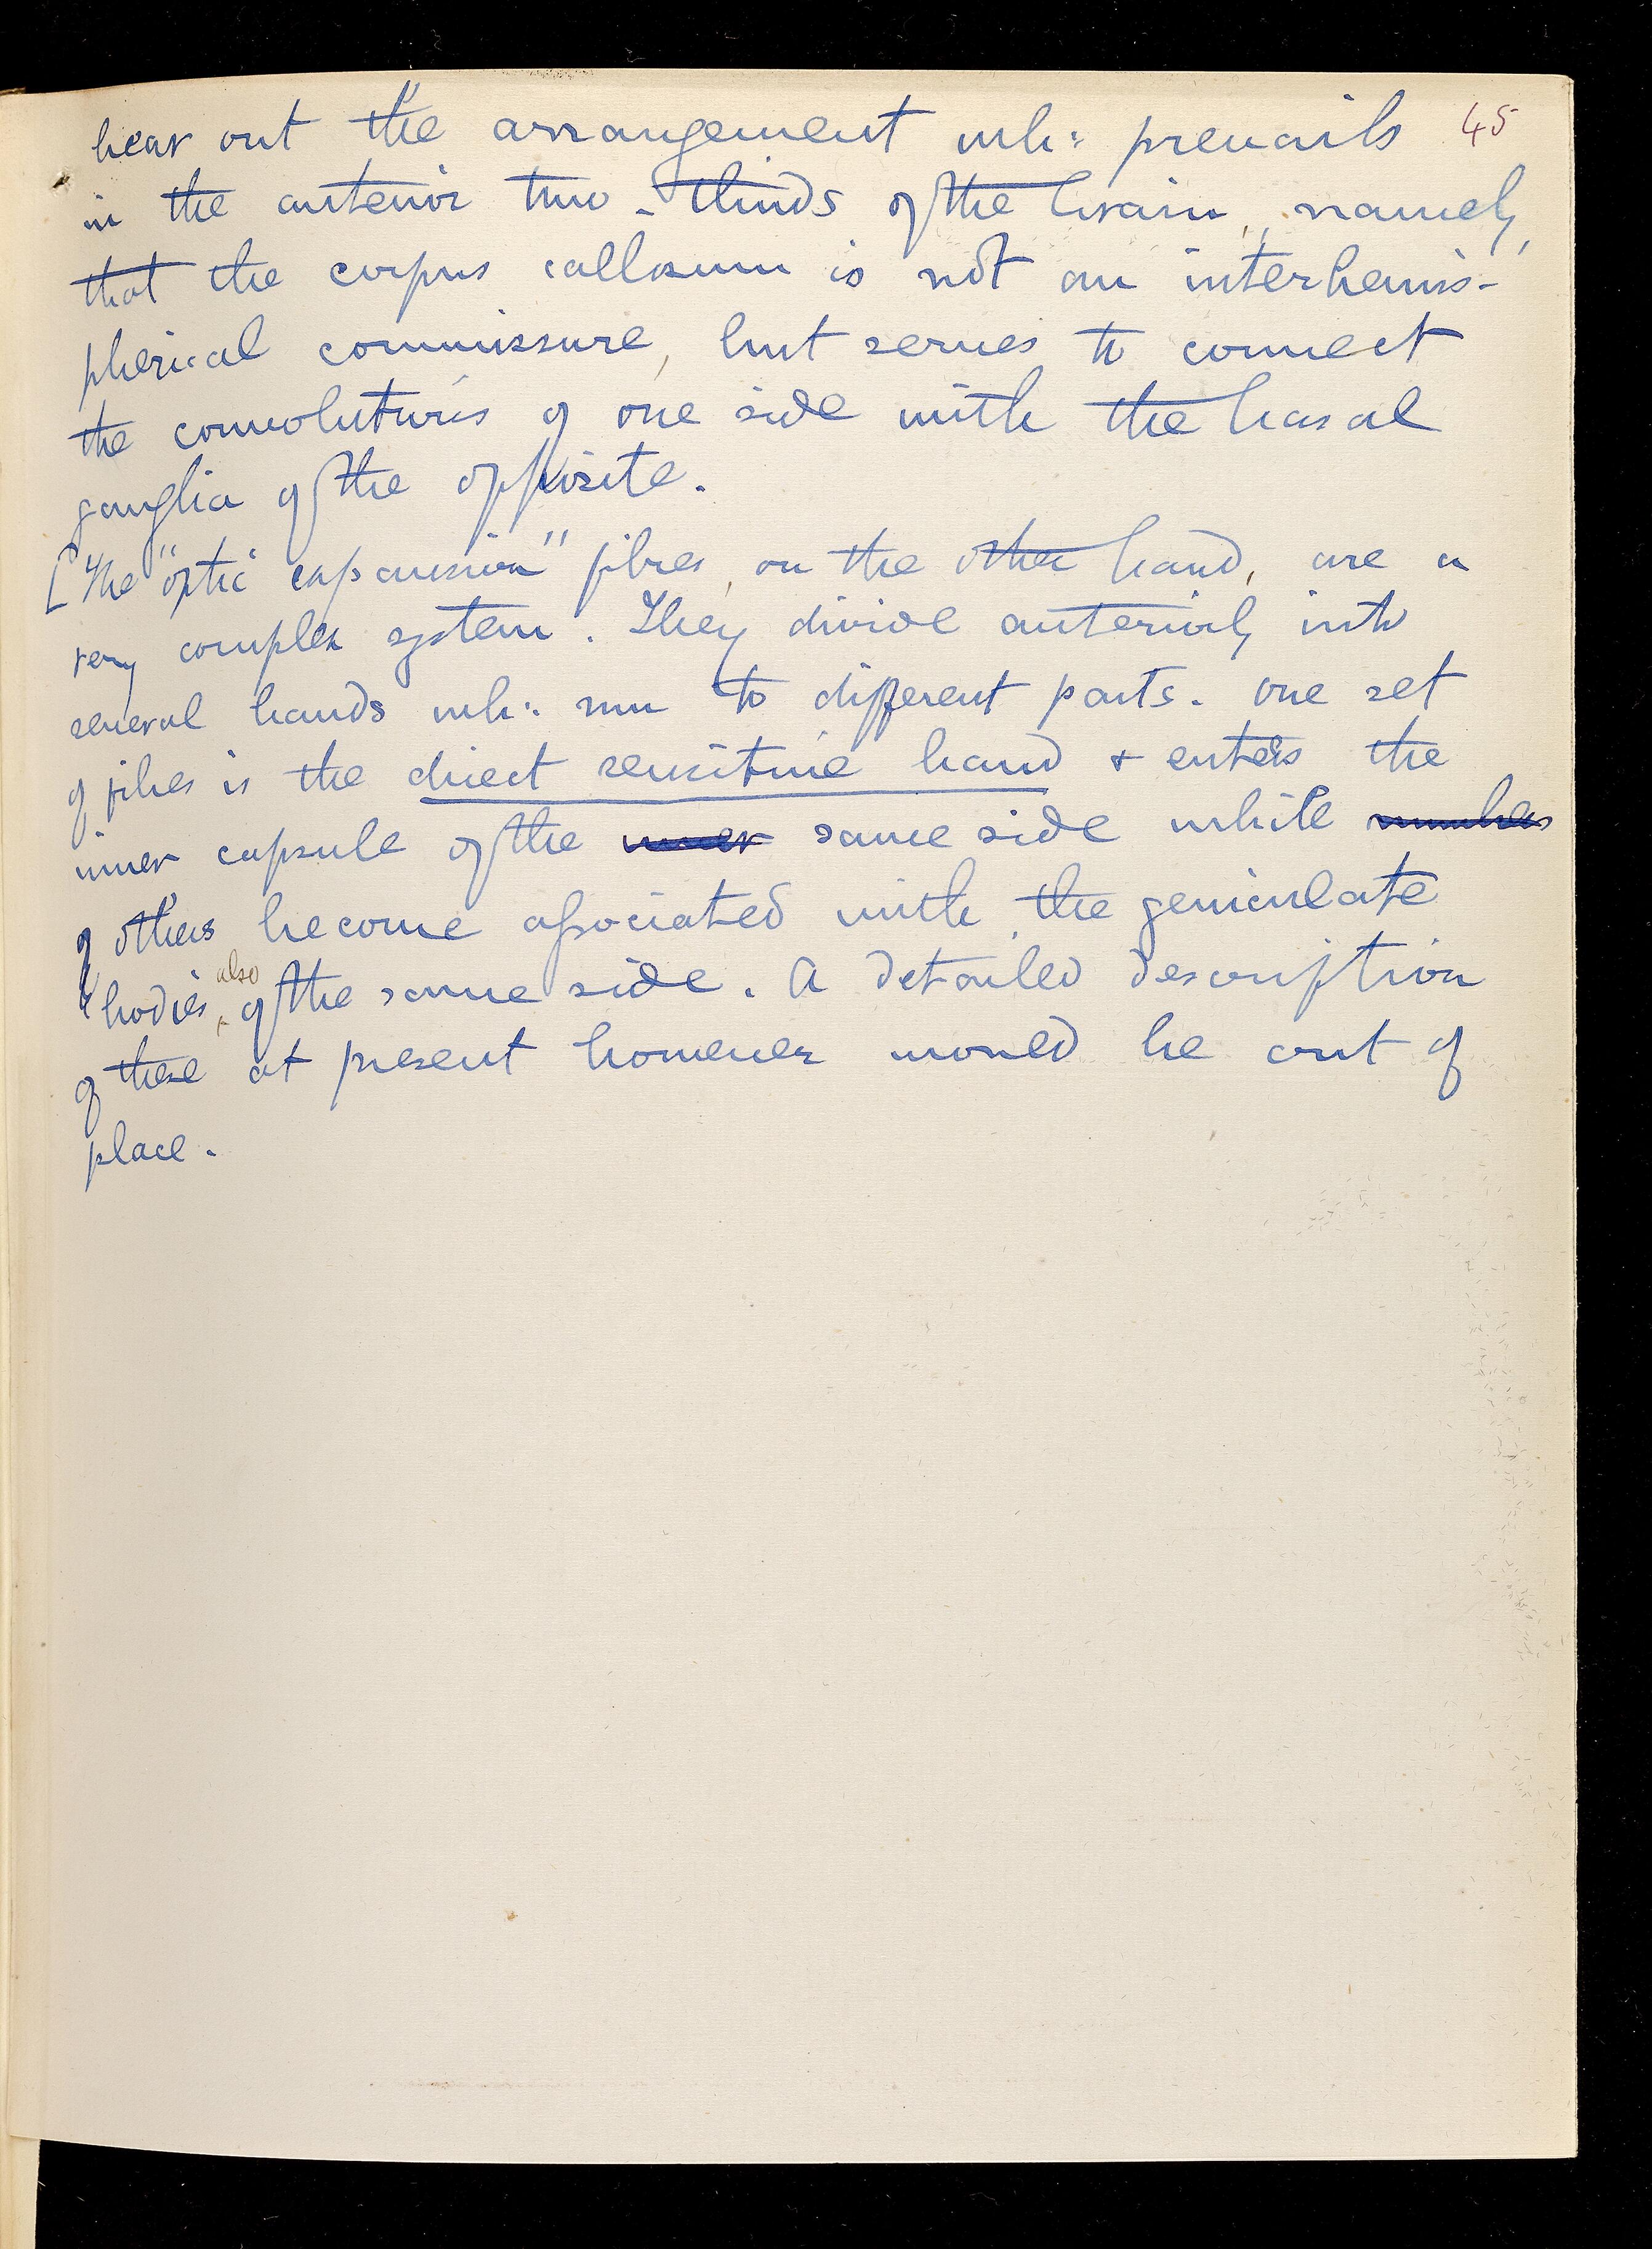 45
bear out the arrangement wh: prevails
in the anterior two-thirds of the brain, namely,
that the corpus callosum is not an interhemis-
pherical commissure, but serves to connect
the convolutions of one side with the basal
ganglia of the opposite.
[The "optic expansion" fibres, on the other hand, are a
very complex system. They divide anteriorly into
several bands wh: run to different parts. One set
of fibres is the direct sensitive band & enters the
inner capsule of the inner same side while numbers
of others become associated with the geniculate
bodies, also of the same side. A detailed description
of these at present however would be out of
place.